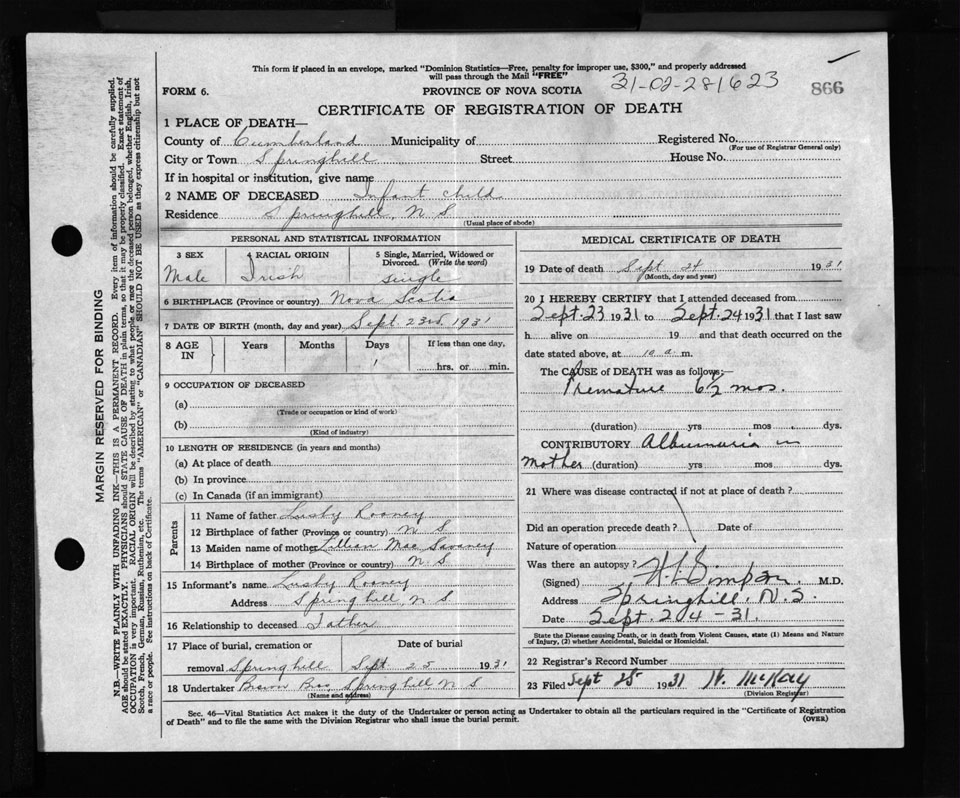 This form if placed in an envelope, marked "Dominion Statistics—Free, penalty for improper use, $300," and properly addressed
will pass through the Mail "FREE"
31-02-281623
866
FORM 6.
PROVINCE OF NOVA SCOTIA
CERTIFICATE OF REGISTRATION OF DEATH
1 PLACE OF DEATH—
County of Cumberland Municipality of Registered No.
(For use of Registrar General only)
City or Town Springhill Street House No.
If in hospital or institution, give name
2 NAME OF DECEASED Infant Child
Residence Springhill, N S
(Usual place of abode)
PERSONAL AND STATISTICAL INFORMATION
3 SEX 4 RACIAL ORIGIN 5 Single, Married, Widowed or
Divorced. (Write the word)
Male Irish single
6 BIRTHPLACE (Province or country) Nova Scotia
7 DATE OF BIRTH (month, day and year) Sept. 23rd. 1931
8 AGE IN Years Months Days If less than one day,
1 hrs. or min.
9 OCCUPATION OF DECEASED
(a)
(Trade or occupation or kind of work)
(b)
(Kind of industry)
10 LENGTH OF RESIDENCE (in years and months)
(a) At place of death
(b) In province
(c) In Canada (if an immigrant)
Parents
11 Name of father Lusby Rooney
12 Birthplace of father (Province or country) N S
13 Maiden name of mother Lillian Mae
14 Birthplace of mother (Province or country) N S
15 Informant's name Lusby Rooney
Address Springhill, N S
16 Relationship to deceased Father
17 Place of burial, cremation or Date of burial
removal Springhill Sept 25 1931
18 Undertaker Brown Bros Springhill, N S
(Name and address)
MEDICAL CERTIFICATE OF DEATH
19 Date of death Sept 24 1931
(Month, day and year)
20 I HEREBY CERTIFY that I attended deceased from
Sept. 23 1931 to Sept. 24 1931 that I last saw
h alive on 19 and that death occurred on the
date stated above, at 10 a. m.
The CAUSE of DEATH was as follows:—
Premature 6½ mos.
(duration) yrs mos. dys.
CONTRIBUTORY Albumuria in
Mother (duration) yrs mos dys.
21 Where was disease contracted if not at place of death?
Did an operation precede death? Date of
Nature of operation
Was there an autopsy?
(Signed) Simpson. M.D.
Address Springhill, N.S.
Date Sept. 24-31.
State the Disease causing Death, or in death from Violent Causes, state (1) Means and Nature
of Injury, (2) whether Accidental, Suicidal or Homicidal.
22 Registrar's Record Number
23 Filed Sept 25 1931 H. McKay
(Division Registrar)
Sec. 46—Vital Statistics Act makes it the duty of the Undertaker or person acting as Undertaker to obtain all the particulars required in the "Certificate of Registration
of Death" and to file the same with the Division Registrar who shall issue the burial permit.
(OVER)
MARGIN RESERVED FOR BINDING
N.B.—WRITE PLAINLY WITH UNFADING INK—THIS IS A PERMANENT RECORD. Every item of information should be carefully supplied.
AGE should be stated EXACTLY. PHYSICIANS should STATE CAUSE OF DEATH in plain terms, so that it may be properly classified. Exact statement of
OCCUPATION is very important. RACIAL ORIGIN will be described by stating to what people or race the deceased person belonged, whether English, Irish,
Scotch, French, German, Russian, Ruthenian, etc. The terms "AMERICAN" or "CANADIAN" SHOULD NOT BE USED as they express citizenship but not
a race or people. See instructions on back of Certificate.